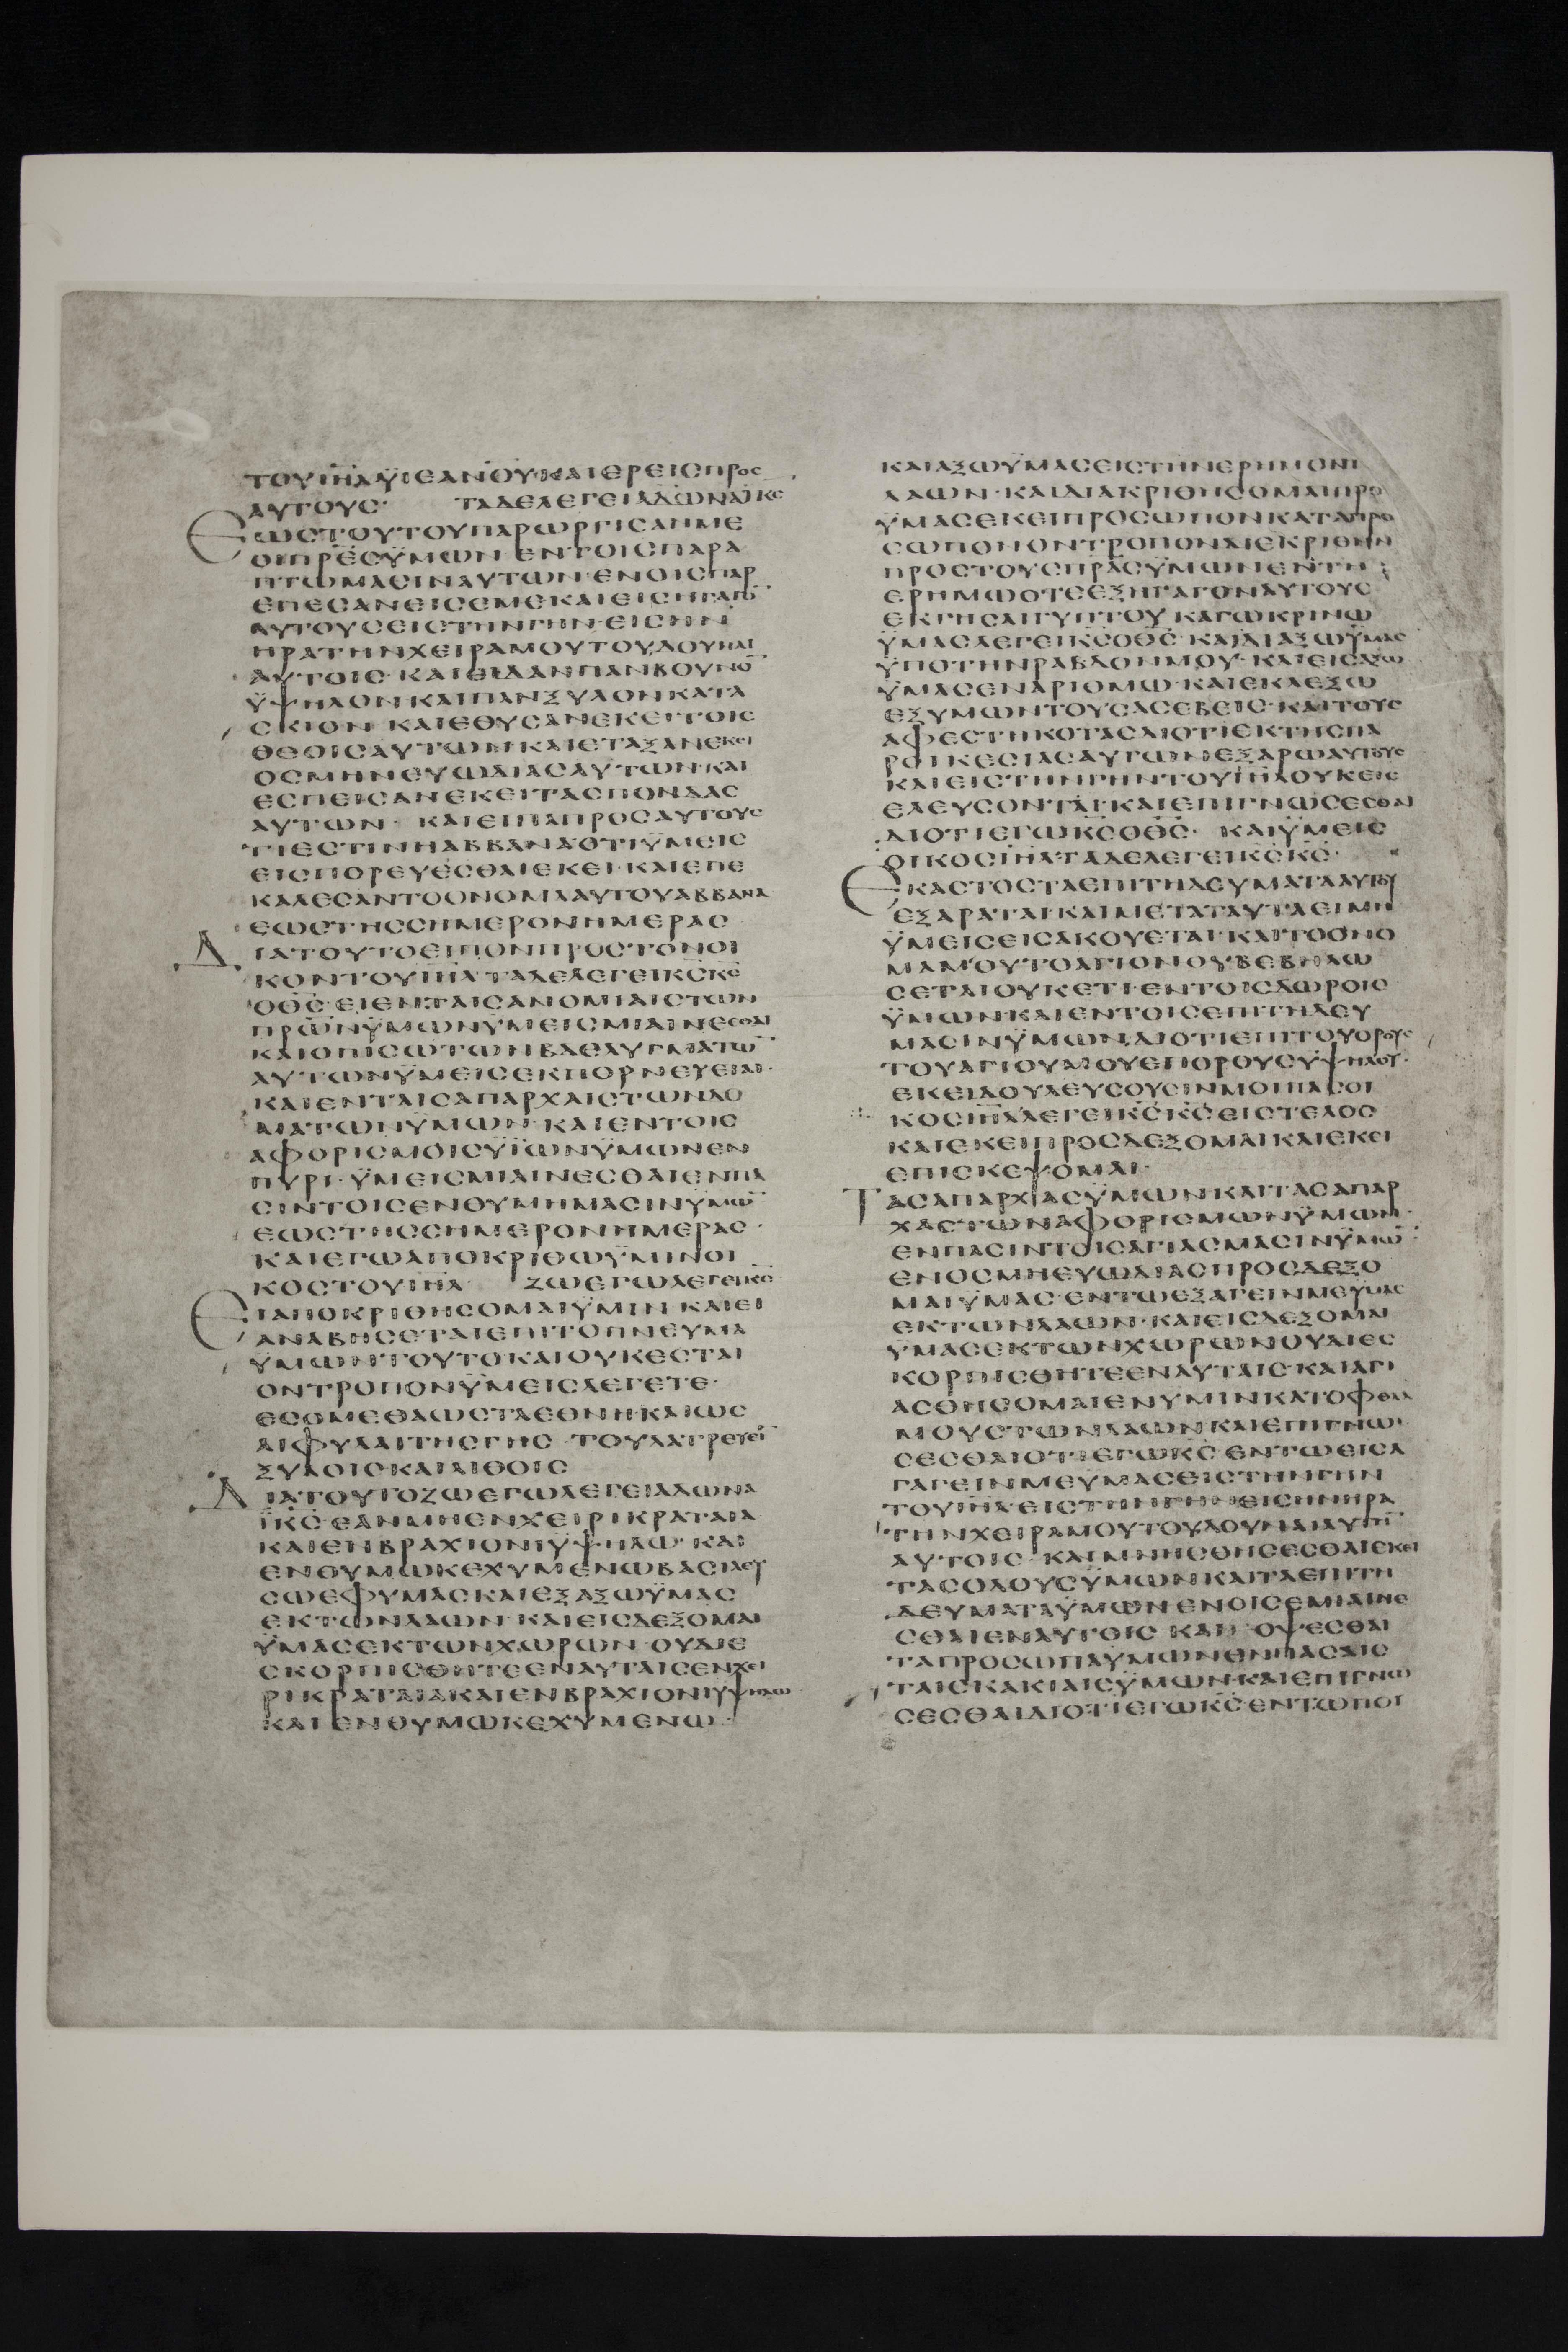 ΤΟΥΙΗΛΫΙΕΑΝΟΥΚΑΙΕΡΕΙСΠΡΟС
ΑΥΤΟΥС· ΤΑΔΕΛΕΓΕΙΑΔΩΝΑΪΚС
ΕΩСΤΟΥΤΟΥΠΑΡΩΡΓΙСΑΝΜΕ
ΟΙΠΡΕСΫΜΩΝ ΕΝΤΟΙСΠΑΡΑ
ΠΤΩΜΑСΙΝΑΥΤΩΝ·ΕΝΟΙСΠΑΡ
ΕΠΕСΑΝΕΙСΕΜΕΚΑΙΕΙСΗΓΑΓΟ
ΑΥΤΟΥСΕΙСΤΗΝΓΗΝ·ΕΙСΗΝ
ΗΡΑΤΗΝΧΕΙΡΑΜΟΥΤΟΥΔΟΥΝΑΙ
ΑΥΤΟΙС·ΚΑΙΕΙΔΑΝΠΑΝΒΟΥΝΟ
ΫΨΗΛΟΝΚΑΙΠΑΝΞΥΛΟΝΚΑΤΑ
СΚΙΟΝ·ΚΑΙΕΘΥСΑΝΕΚΕΙΤΟΙС
ΘΕΟΙСΑΥΤΩΝ·ΚΑΙΕΤΑΞΑΝΕΚΕΙ
ΟСΜΗΝΕΥΩΔΙΑСΑΥΤΩΝ·ΚΑΙ
ΕСΠΕΙСΑΝΕΚΕΙΤΑСΠΟΝΔΑС
ΑΥΤΩΝ· ΚΑΙΕΙΠΑΠΡΟСΑΥΤΟΥС
ΤΙΕСΤΙΝΗΑΒΒΑΝΑΟΤΙΫΜΕΙС
ΕΙСΠΟΡΕΥΕСΘΑΙΕΚΕΙ·ΚΑΙΕΠΕ
ΚΑΛΕСΑΝΤΟΟΝΟΜΑΑΥΤΟΥΑΒΒΑΝΑ
ΕΩСΤΗССΗΜΕΡΟΝΗΜΕΡΑС
ΔΙΑΤΟΥΤΟΕΙΠΟΝΠΡΟСΤΟΝΟΙ
ΚΟΝΤΟΥΙΗΛ·ΤΑΔΕΛΕΓΕΙΚСΚС
ΟΘС·ΕΙΕΝΤΑΙСΑΝΟΜΙΑΙСΤΩΝ
ΠΡΩΝΫΜΩΝΫΜΕΙСΜΙΑΙΝΕСΘΑΙ
ΚΑΙΟΠΙСΩΤΩΝΒΔΕΛΥΓΜΑΤΩ
ΑΥΤΩΝΫΜΕΙСΕΚΠΟΡΝΕΥΕΤΑΙ·
ΚΑΙΕΝΤΑΙСΑΠΑΡΧΑΙСΤΩΝΔΟ
ΜΑΤΩΝΫΜΩΝ·ΚΑΙΕΝΤΟΙС
ΑΦΟΡΙСΜΟΙСΥΪΩΝΫΜΩΝΕΝ
ΠΥΡΙ·ΫΜΕΙСΜΙΑΙΝΕСΘΑΙΕΝΠΑ
СΙΝΤΟΙСΕΝΘΥΜΗΜΑСΙΝΫΜΩ
ΕΩСΤΗССΗΜΕΡΟΝΗΜΕΡΑС·
ΚΑΙΕΓΩΑΠΟΚΡΙΘΩΫΜΙΝΟΙ
ΚΟСΤΟΥΙΗΛ ΖΩΕΓΩΛΕΓΕΙΚС
ΕΙΑΠΟΚΡΙΘΗСΟΜΑΙΫΜΙΝ·ΚΑΙΕΙ
ΑΝΑΒΗСΕΤΑΙΕΠΙΤΟΠΝΕΥΜΑ
ΫΜΩΝΤΟΥΤΟΚΑΙΟΥΚΕСΤΑΙ
ΟΝΤΡΟΠΟΝΫΜΕΙСΛΕΓΕΤΕ·
ΕСΟΜΕΘΑΩСΤΑΕΘΝΗ·ΚΑΙΩС
ΑΙΦΥΛΑΙΤΗСΓΗС·ΤΟΥΛΑΤΡΕΥΕΙ
ΞΥΛΟΙСΚΑΙΛΙΘΟΙС
ΔΙΑΤΟΥΤΟΖΩΕΓΩΛΕΓΕΙΑΔΩΝΑ
ΪΚС·ΕΑΝΜΗΕΝΧΕΙΡΙΚΡΑΤΑΙΑ
ΚΑΙΕΝΒΡΑΧΙΟΝΙΫΨΗΛΩ·ΚΑΙ
ΕΝΘΥΜΩΚΕΧΥΜΕΝΩΒΑСΙΛΕΥ
СΩΕΦΥΜΑСΚΑΙΕΞΑΞΩΫΜΑС
ΕΚΤΩΝΛΑΩΝ·ΚΑΙΕΙСΔΕΞΟΜΑΙ
ΫΜΑСΕΚΤΩΝΧΩΡΩΝ·ΟΥΔΙΕ
СΚΟΡΠΙСΘΗΤΕΕΝΑΥΤΑΙСΕΝΧΕΙ
ΡΙΚΡΑΤΑΙΑΚΑΙΕΝΒΡΑΧΙΟΝΙΥΨΗΛΩ
ΚΑΙΕΝΘΥΜΩΚΕΧΥΜΕΝΩ·
ΚΑΙΑΞΩΫΜΑСΕΙСΤΗΝΕΡΗΜΟΝ
ΛΑΩΝ·ΚΑΙΔΙΑΚΡΙΘΗСΟΜΑΙΠΡΟ
ΫΜΑСΕΚΕΙΠΡΟСΩΠΟΝΚΑΤΑΠΡΟ
СΩΠΟΝΟΝΤΡΟΠΟΝΔΙΕΚΡΙΘΗΝ
ΠΡΟСΤΟΥСΠΡΑСΫΜΩΝΕΝΤΗ
ΕΡΗΜΩΟΤΕΕΞΗΓΑΓΟΝΑΥΤΟΥС
ΕΚΓΗСΑΙΓΥΠΤΟΥ·ΚΑΓΩΚΡΙΝΩ
ΫΜΑСΛΕΓΕΙΚСΟΘС·ΚΑΙΔΙΑΞΩΫΜΑС
ΫΠΟΤΗΝΡΑΒΔΟΝΜΟΥ·ΚΑΙΕΙСΑΞΩ
ΫΜΑСΕΝΑΡΙΘΜΩ·ΚΑΙΕΚΛΕΞΩ
ΕΞΥΜΩΝΤΟΥСΑСΕΒΕΙС·ΚΑΙΤΟΥС
ΑΦΕСΤΗΚΟΤΑСΔΙΟΤΙΕΚΤΗСΠΑ
ΡΟΙΚΕСΙΑСΑΥΤΩΝΕΞΑΡΩΑΥΤΟΥС
ΚΑΙΕΙСΤΗΝΓΗΝΤΟΥΙΗΛΟΥΚΕΙС
ΕΛΕΥСΟΝΤΑΙ·ΚΑΙΕΠΙΓΝΩСΕСΘΑΙ
ΔΙΟΤΙΕΓΩΚСΟΘС· ΚΑΙΫΜΕΙС
ΟΙΚΟСΙΗΛ·ΤΑΔΕΛΕΓΕΙΚСΚС·
ΕΚΑСΤΟСΤΑΕΠΙΤΗΔΕΥΜΑΤΑΑΥΤΟΥ
ΕΞΑΡΑΤΑΙ·ΚΑΙΜΕΤΑΤΑΥΤΑΕΙΜΗ
ΫΜΕΙСΕΙСΑΚΟΥΕΤΑΙ·ΚΑΙΤΟΟΝΟ
ΜΑΜΟΥΤΟΑΓΙΟΝΟΥΒΕΒΗΛΩ
СΕΤΑΙΟΥΚΕΤΙΕΝΤΟΙСΔΩΡΟΙС
ΫΜΩΝΚΑΙΕΝΤΟΙСΕΠΙΤΗΔΕΥ
ΜΑСΙΝΫΜΩΝ·ΔΙΟΤΙΕΠΙΤΟΥΟΡΟΥС
ΤΟΥΑΓΙΟΥΜΟΥΕΠΟΡΟΥСΥΨΗΛΟΥ·
ΕΚΕΙΔΟΥΛΕΥСΟΥСΙΝΜΟΙΠΑСΟΙ
ΚΟСΙΗΛΛΕΓΕΙΚСΚС·ΕΙСΤΕΛΟС
ΚΑΙΕΚΕΙΠΡΟСΔΕΞΟΜΑΙΚΑΙΕΚΕΙ
ΕΠΙСΚΕΨΟΜΑΙ·
ΤΑСΑΠΑΡΧΙΑСΫΜΩΝ·ΚΑΙΤΑСΑΠΑΡ
ΧΑСΤΩΝΑΦΟΡΙСΜΩΝΫΜΩΝ·
ΕΝΠΑСΙΝΤΟΙСΑΓΙΑСΜΑСΙΝΫΜΩ
ΕΝΟСΜΗΕΥΩΔΙΑСΠΡΟСΔΕΞΟ
ΜΑΙΫΜΑС·ΕΝΤΩΕΞΑΓΕΙΝΜΕΥΜΑС
ΕΚΤΩΝΛΑΩΝ·ΚΑΙΕΙСΔΕΞΟΜΑΙ
ΥΜΑСΕΚΤΩΝΧΩΡΩΝΟΥΔΙΕС
ΚΟΡΠΙСΘΗΤΕΕΝΑΥΤΑΙС·ΚΑΙΑΓΙ
ΑСΘΗСΟΜΑΙΕΝΥΜΙΝΚΑΤΟΦΘΑΛ
ΜΟΥСΤΩΝΛΑΩΝΚΑΙΕΠΙΓΝΩ
СΕСΘΑΙΟΤΙΕΓΩΚС·ΕΝΤΩΕΙСΑ
ΓΑΓΕΙΝΜΕΫΜΑСΕΙСΤΗΝΓΗΝ
ΤΟΥΙΗΛ·ΕΙСΤΗΝΓΗΝΕΙСΗΝΗΡΑ
ΤΗΝΧΕΙΡΑΜΟΥΤΟΥΔΟΥΝΑΙΑΥΤΗ
ΑΥΤΟΙС·ΚΑΙΜΝΗСΘΗСΕСΘΑΙΕΚΕΙ
ΤΑСΟΔΟΥСΫΜΩΝΚΑΙΤΑΕΠΙΤΗ
ΔΕΥΜΑΤΑΫΜΩΝΕΝΟΙСΕΜΙΑΙΝΕ
СΘΑΙΕΝΑΥΤΟΙС·ΚΑΙ ΟΨΕСΘΑΙ
ΤΑΠΡΟСΩΠΑΥΜΩΝΕΝΠΑСΑΙС
ΤΑΙСΚΑΚΙΑΙСΫΜΩΝ·ΚΑΙΕΠΙΓΝΩ
СΕСΘΑΙΔΙΟΤΙΕΓΩΚСΕΝΤΩΠΟΙ